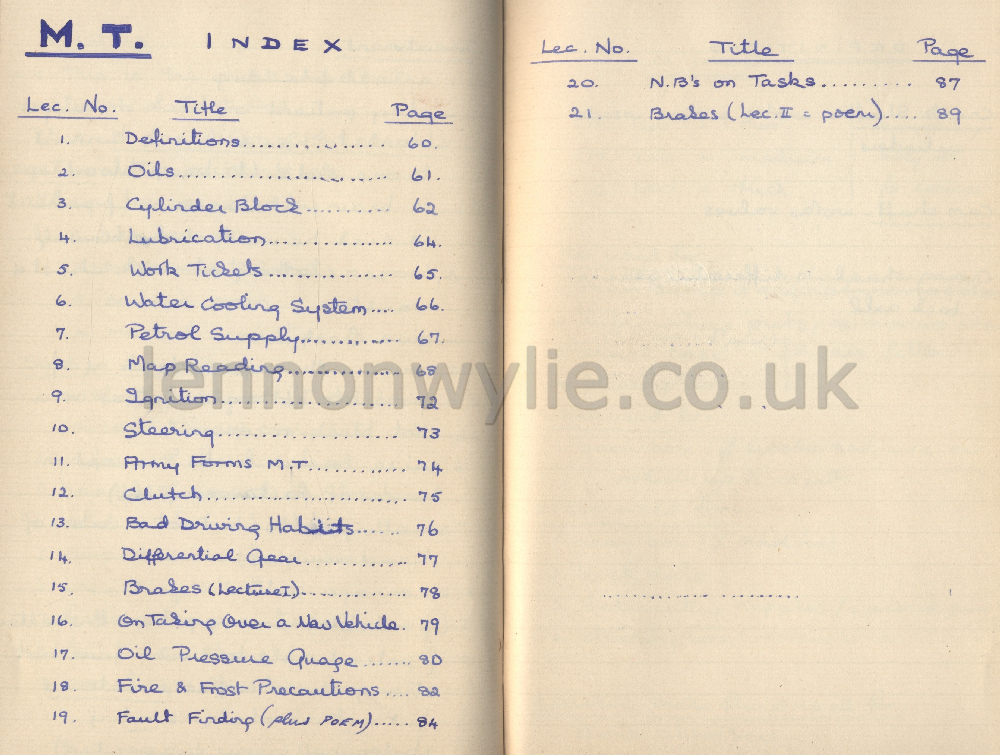 M. T. INDEX
Lec. No. Title Page
1. Definitions................ 60.
2. Oils........................ 61.
3. Cylinder Block.......... 62
4. Lubrication............... 64.
5. Work Tickets............... 65.
6. Water Cooling System.... 66.
7. Petrol Supply............. 67.
8. Map Reading............... 68
9. Ignition................... 72
10. Steering.................. 73
11. Army Forms M.T............ 74
12. Clutch..................... 75
13. Bad Driving Habits...... 76
14. Differential Gear............ 77
15. Brakes (Lecture I)............ 78
16. On Taking Over a New Vehicle. 79
17. Oil Pressure Guage....... 80
18. Fire & Frost Precautions.... 82
19. Fault Finding (plus POEM)..... 84
Lec. No. Title Page
20. N.B's on Tasks.......... 87
21. Brakes (Lec. II = poem).... 89
lennonwylie.co.uk